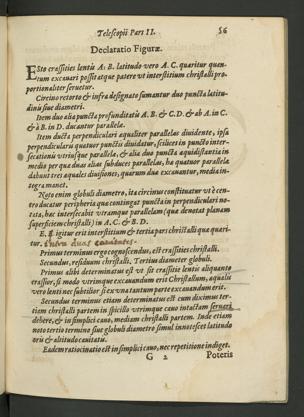 Telescopii Pars II.
56
Declaratio Figuræ.
ESto crassities lentis A: B. latitudo vero A. C. quæritur quan-
tum excavari possit atque patere vt interstitium christalli pro-
portionaliter seruetur.
Circino retorto & infra designato sumantur duo puncta latitu-
dinis siue diametri.
Item duo alia puncta profunditatis A. B. & C. D. & ab A. in C.
& à B. in D. ducantur parallelæ.
Item ducta perpendiculari æqualiter parallelas diuidente, ipsa
perpendicularis quatuor punctis diuidatur, scilicet in puncto inter-
secationis vtriusque parallelæ, & alia duo puncta æquidistantia in
medio per quæ duas alias subduces parallelas, hæ quatuor parallelæ
dabunt tres æquales diuisiones, quarum duæ excauantur, media in-
tegra manet.
Noto enim globuli diametro, ita circinus constituatur vt è cen-
tro ducatur peripheria quæ contingat puncta in perpendiculari no-
tata, hæc intersecabit vtramque parallelam (quæ denotat planam
superficiem christalli) in A. C. & B. D.
E. F. igitur erit interstitium & tertia pars christalli quæ quæri-
tur. duas
Primum terminus ergo cognoscendus, est crassities christalli.
Secundus, residuum christalli. Tertius diameter globuli.
Primus alibi determinatus est vt sit crassitie lentis aliquanto
crassior, si modo vtrimque excauandum erit Christallum, æqualis
vero lenti nec subtilior si ex vna tantum parte excauandum erit.
Secundus terminus etiam determinatus est cum diximus ter-
tiam christalli partem in spicillo vtrimque cauo intactam seruari
debere, & in simplici cauo, mediam christalli partem. Inde etiam
noto tertio termino siue globuli diametro simul innotescet latitudo
oris & altitudo cauitatis.
Eadem ratiocinatio est in simplici cauo, nec repetitione indiget.
G 2 Poteris